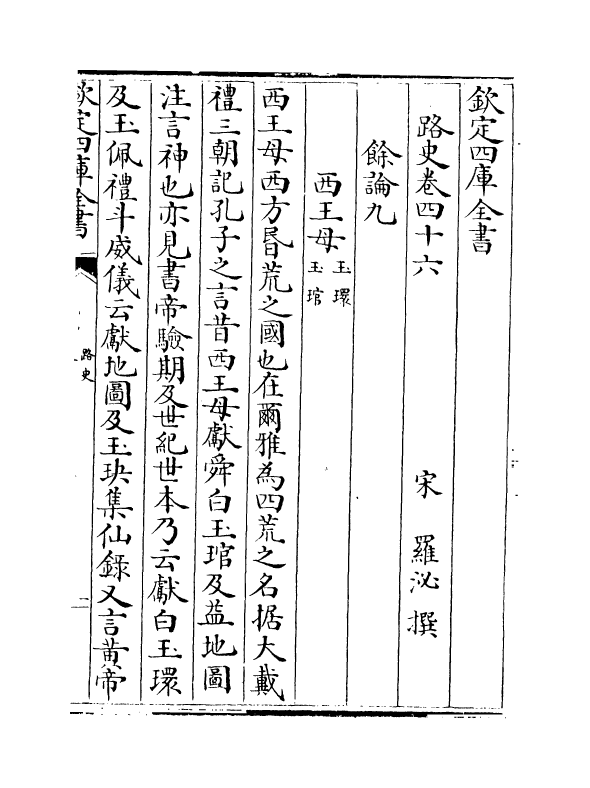 欽定四庫全書
路史卷四十六
宋 羅泌 撰
餘論九
西王母玉環玉琯
西王母西方昬荒之國也在爾雅為四荒之名据大戴
禮三朝記孔子之言昔西王母獻舜白玉琯及益地圖
注言神也亦見書帝驗期及世紀世本乃云獻白玉環
及玉佩禮斗威儀云獻地圖及玉玦集仙錄又言黄帝
欽定四庫全書
路史